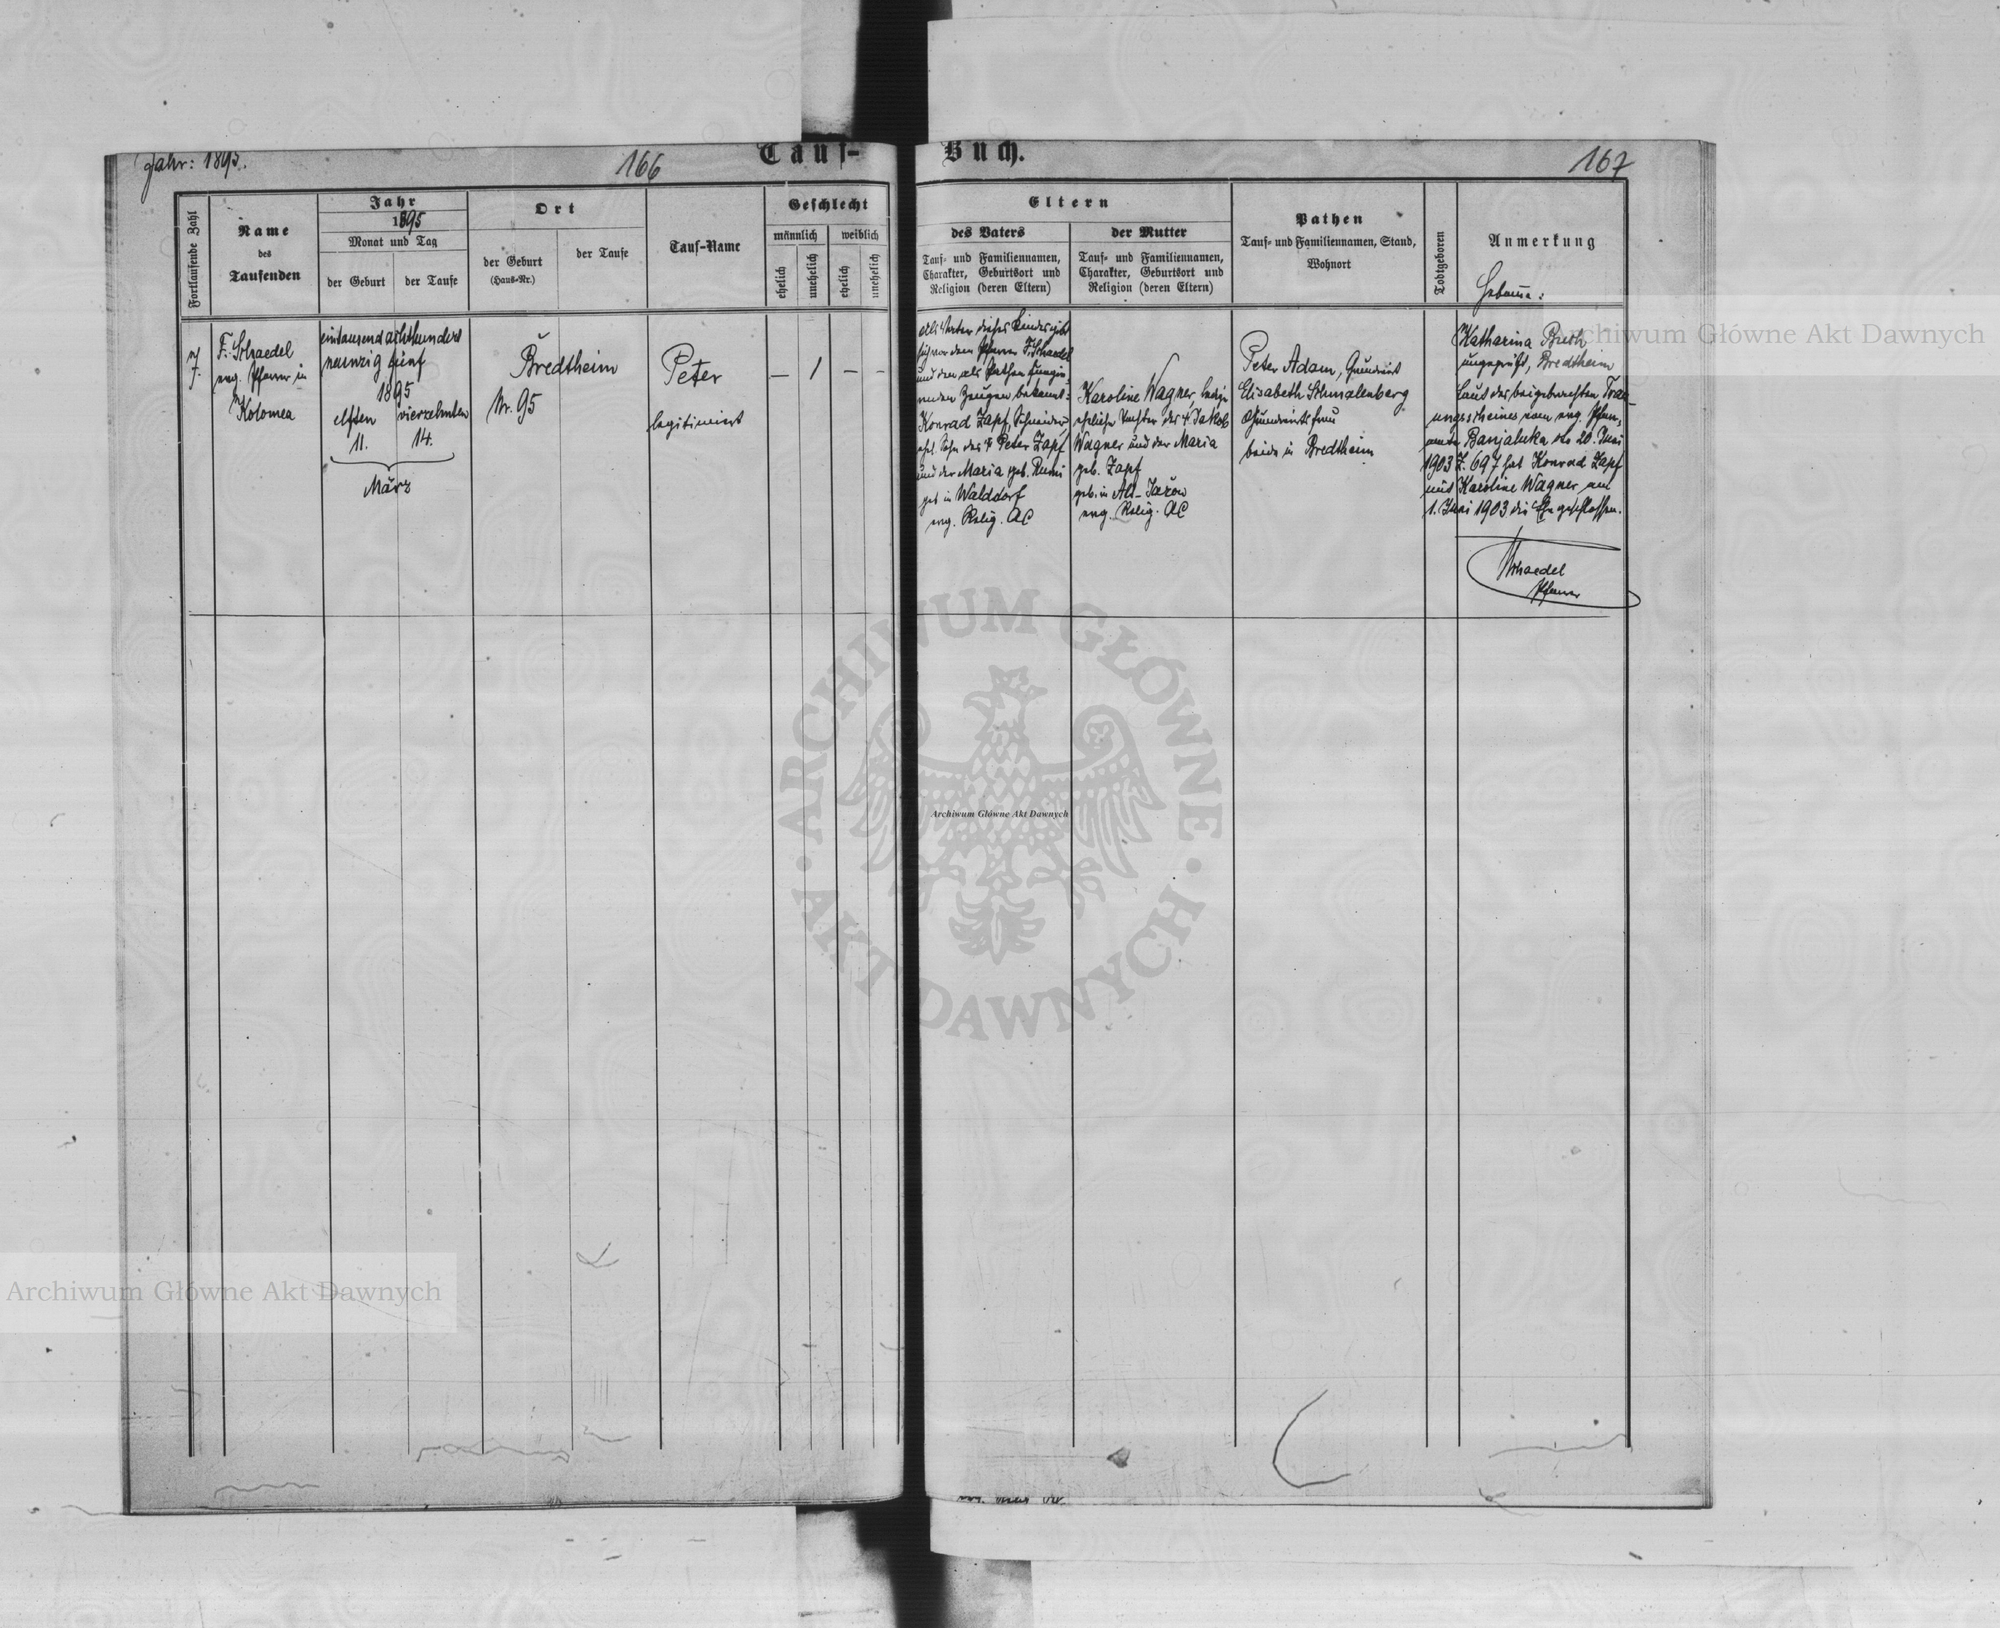 Jahr: 1895.
166
Tauf-
Buch.
167
Fortlaufende Zahl
Name
des
Taufenden
Jahr
1895
Monat und Tag
der Geburt
der Taufe
Ort
der Geburt
(Haus-Nr.)
der Taufe
Tauf-Name
Geschlecht
männlich
weiblich
ehelich
unehelich
ehelich
unehelich
Eltern
des Vaters
Tauf- und Familiennamen,
Charakter, Geburtsort und
Religion (deren Eltern)
der Mutter
Tauf- und Familiennamen,
Charakter, Geburtsort und
Religion (deren Eltern)
Pathen
Tauf- und Familiennamen, Stand,
Wohnort
Todtgeboren
Anmerkung
Hebamme:
7.
F. Schaedel
evg. Pfarrer in
Kolomea
eintausend achthundert
neunzig fünf
1895
elften
vierzehnten
11.
14.
März
Bredtheim
Nr. 95
Peter
legitimiert
—
1
—
—
Als Vater dieses Kindes gibt
sich vor dem Pfarrer F. Schaedel
und den als Pathen fungie-
renden Zeugen bekannt:
Konrad Zapf, Schneider,
ehel. Sohn des † Peter Zapf
und der Maria geb.
geb. in Walddorf
evg. Relig. AC
Karoline Wagner, ledig
eheliche Tochter des † Jakob
Wagner und der Maria
geb. Zapf
geb. in Alt-Jażow
evg. Relig. AC
Peter Adam, Grundwirt
Elisabeth Schmalenberg
Grundwirtsfrau
beide in Bredtheim
Katharina Buth
ungeprüft, Bredtheim
Laut des beigebrachten Trau-
ungsscheines vom evg. Pfarr-
amte Banjaluka dto 20. Juni
1903 Z. 697 hat Konrad Zapf
mit Karoline Wagner am
1. Juni 1903 die Ehe geschlossen.
Schaedel
Pfarrer
Archiwum Główne Akt Dawnych
ARCHIWUM GŁÓWNE · AKT DAWNYCH ·
Archiwum Główne Akt Dawnych
Archiwum Główne Akt Dawnych